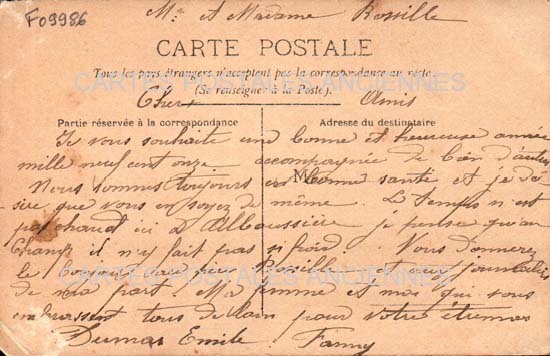 F09986
Mr et Madame Rossille
CARTE POSTALE
Tous les pays étrangers n'acceptent pas la correspondance au recto
(Se renseigner à la Poste).
CARTES POSTALES ANCIENNES
Chers Amis
Partie réservée à la correspondance
Adresse du destinataire
Je vous souhaite une bonne et heureuse année
mille neuf cent onze accompagnée de bien d'autres
M
Nous sommes toujours en bonne santé et je dé
sire que vous en soyez de même. Le temps n est
pas chaud ici D Alboussière je pense qu'au
Champ il n'y fait pas si froid. Vous donnerez
le bonjour Rossille et aux
CARTES POSTALES ANCIENNES
de ma part. Ma femme et moi qui vous
embrassent tous de loin pour votre étrennes
Dumas Emile Fanny